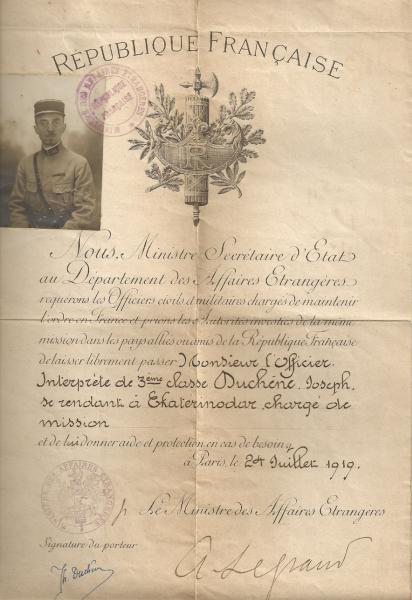 RÉPUBLIQUE FRANÇAISE
Nous, Ministre Secrétaire d'Etat
au Département des Affaires Etrangères
requérons les Officiers civils et militaires chargés de maintenir
l'ordre en France et prions les Autorités investies de la même
mission dans les pays alliés ou amis de la République Française
de laisser librement passer Monsieur l'Officier
Interprète de 3ème classe Duchêne, Joseph,
se rendant à Ekaterinodar, chargé de
mission
et de lui donner aide et protection en cas de besoin
à Paris, le 24 Juillet 1919.
Le Ministre des Affaires Etrangères
Signature du porteur
A. Legrand